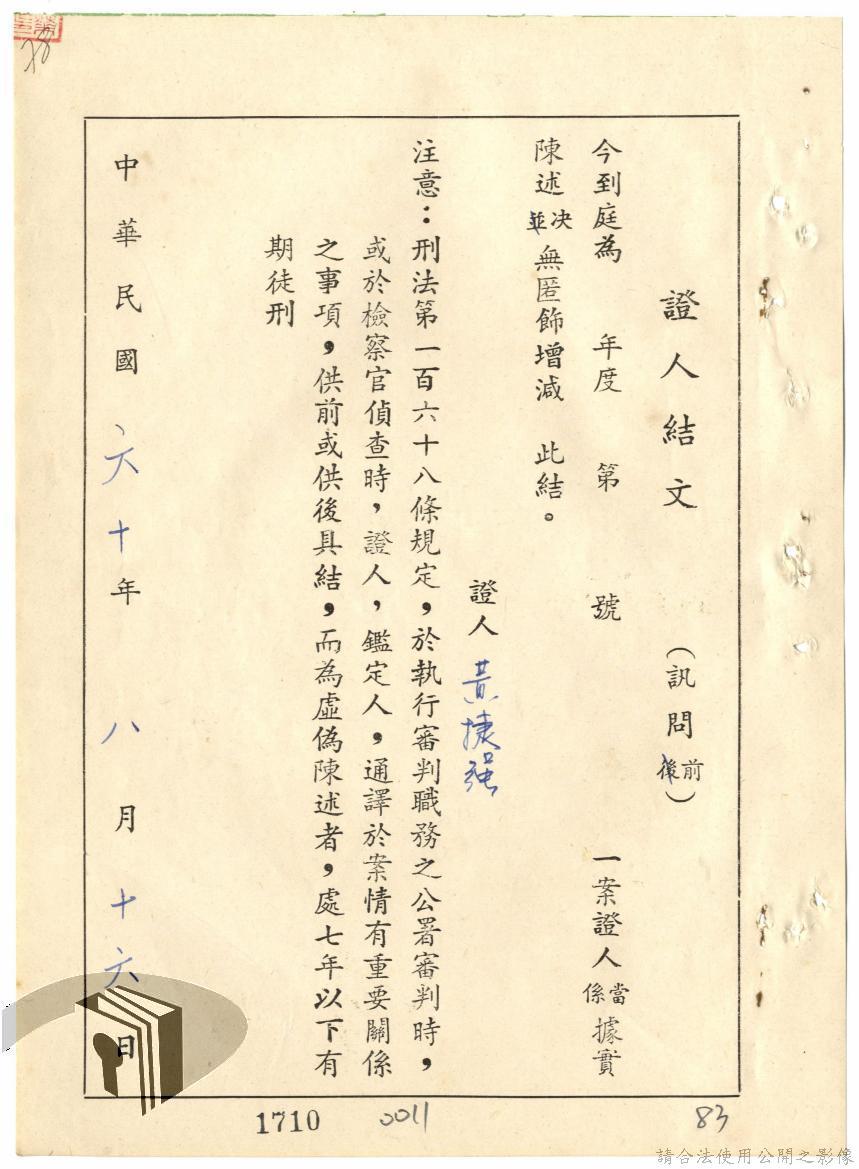 證人結文(訊問前後)
今到庭為 年度 第 號 一案證人當係據實
陳述決並無匿飾增減 此結。
證人 黃捷强
注意:刑法第一百六十八條規定,於執行審判職務之公署審判時,
或於檢察官偵查時,證人,鑑定人,通譯於案情有重要關係
之事項,供前或供後具結,而為虛偽陳述者,處七年以下有
期徒刑
中華民國六十年八月十六日
78
1710
0011
83
請合法使用公開之影像